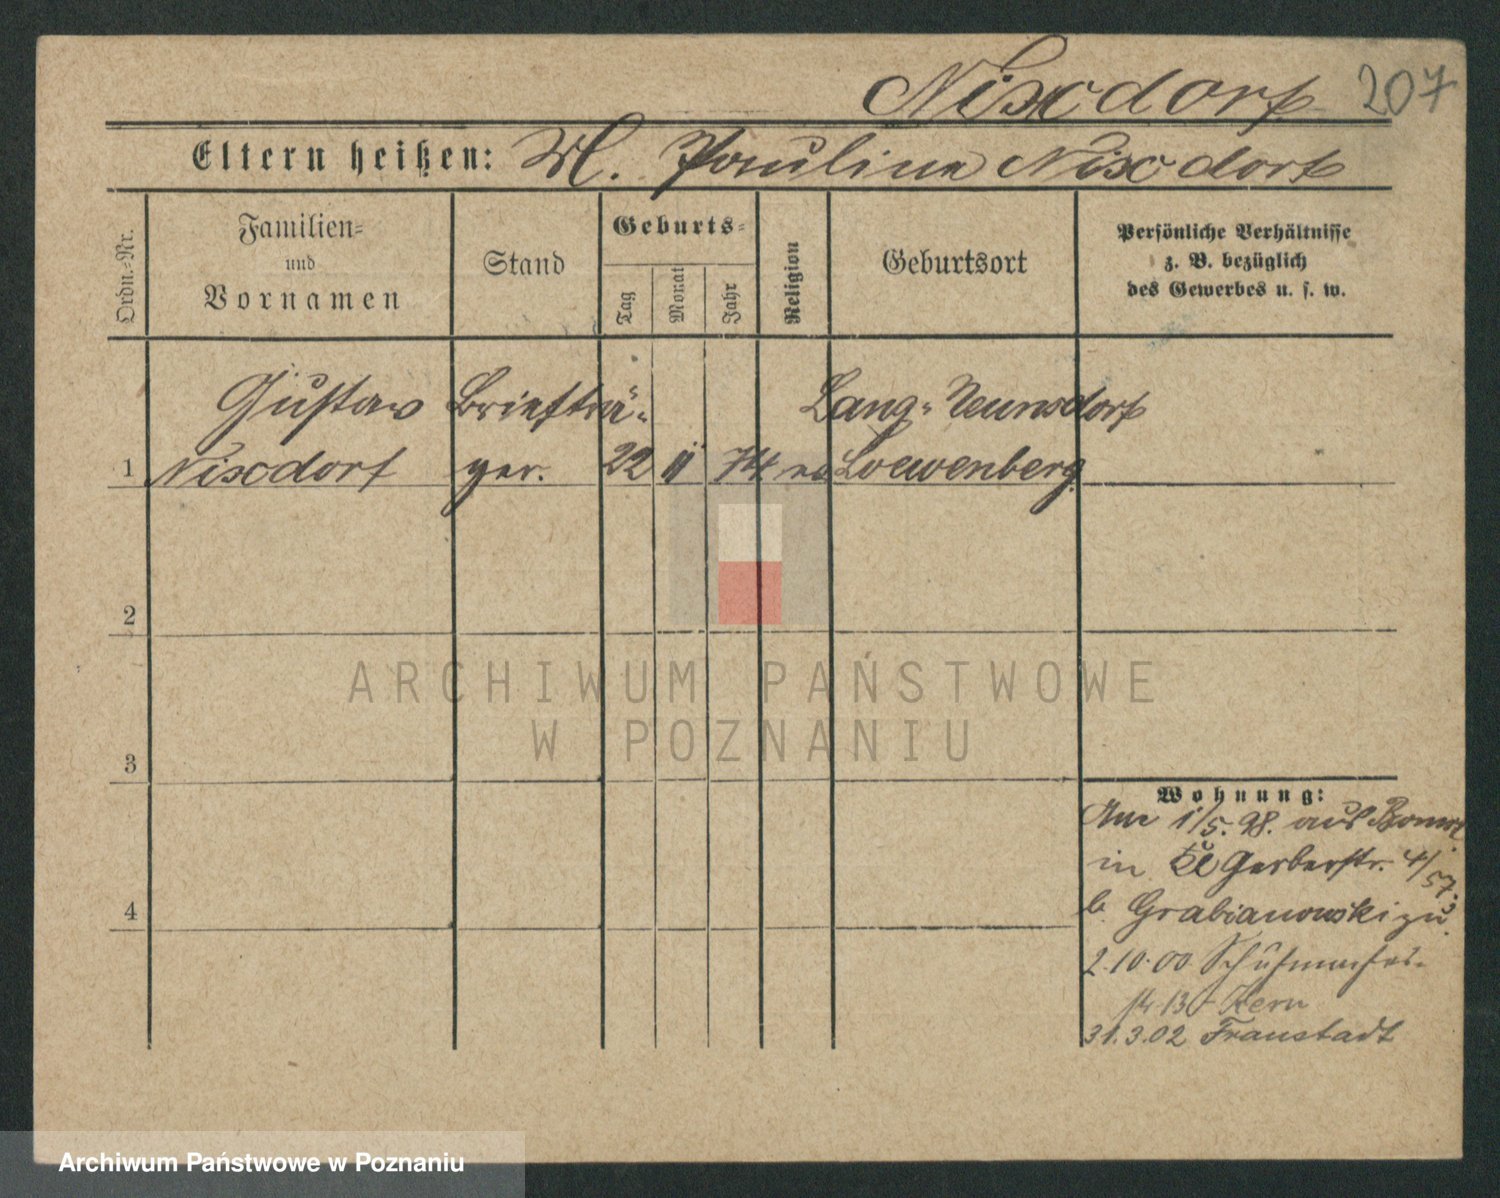 Nixdorf 207
Eltern heißen: M. Pauline Nixdorf
Ordn.-Nr.
Familien-
und
Vornamen
Stand
Geburts-
Tag
Monat
Jahr
Religion
Geburtsort
Persönliche Verhältnisse
z. B. bezüglich
des Gewerbes u. s. w.
Gustav Briefträ- Lang-Neunsdorf
1 Nixdorf ger. 22 11 74 ev Loewenberg
2
3
4
Wohnung:
Am 1/5. 98. aus Bomst
in Gerberstr. 4/57.
b. Grabianowski zu.
2.10.00 Schuhmacher-
14 13 Kern
31.3.02 Fraustadt
ARCHIWUM PAŃSTWOWE
W POZNANIU
Archiwum Państwowe w Poznaniu